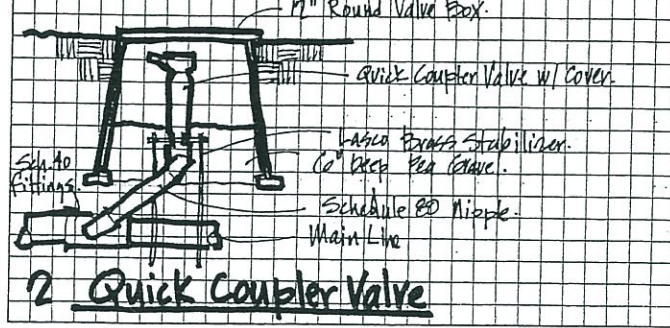 12" Round Valve Box.
Quick Coupler Valve w/ Cover.
Lasco Brass Stabilizer.
6" Deep Pea Gravel.
Sch. 40
fittings.
Schedule 80 Nipple.
Main Line
2 Quick Coupler Valve